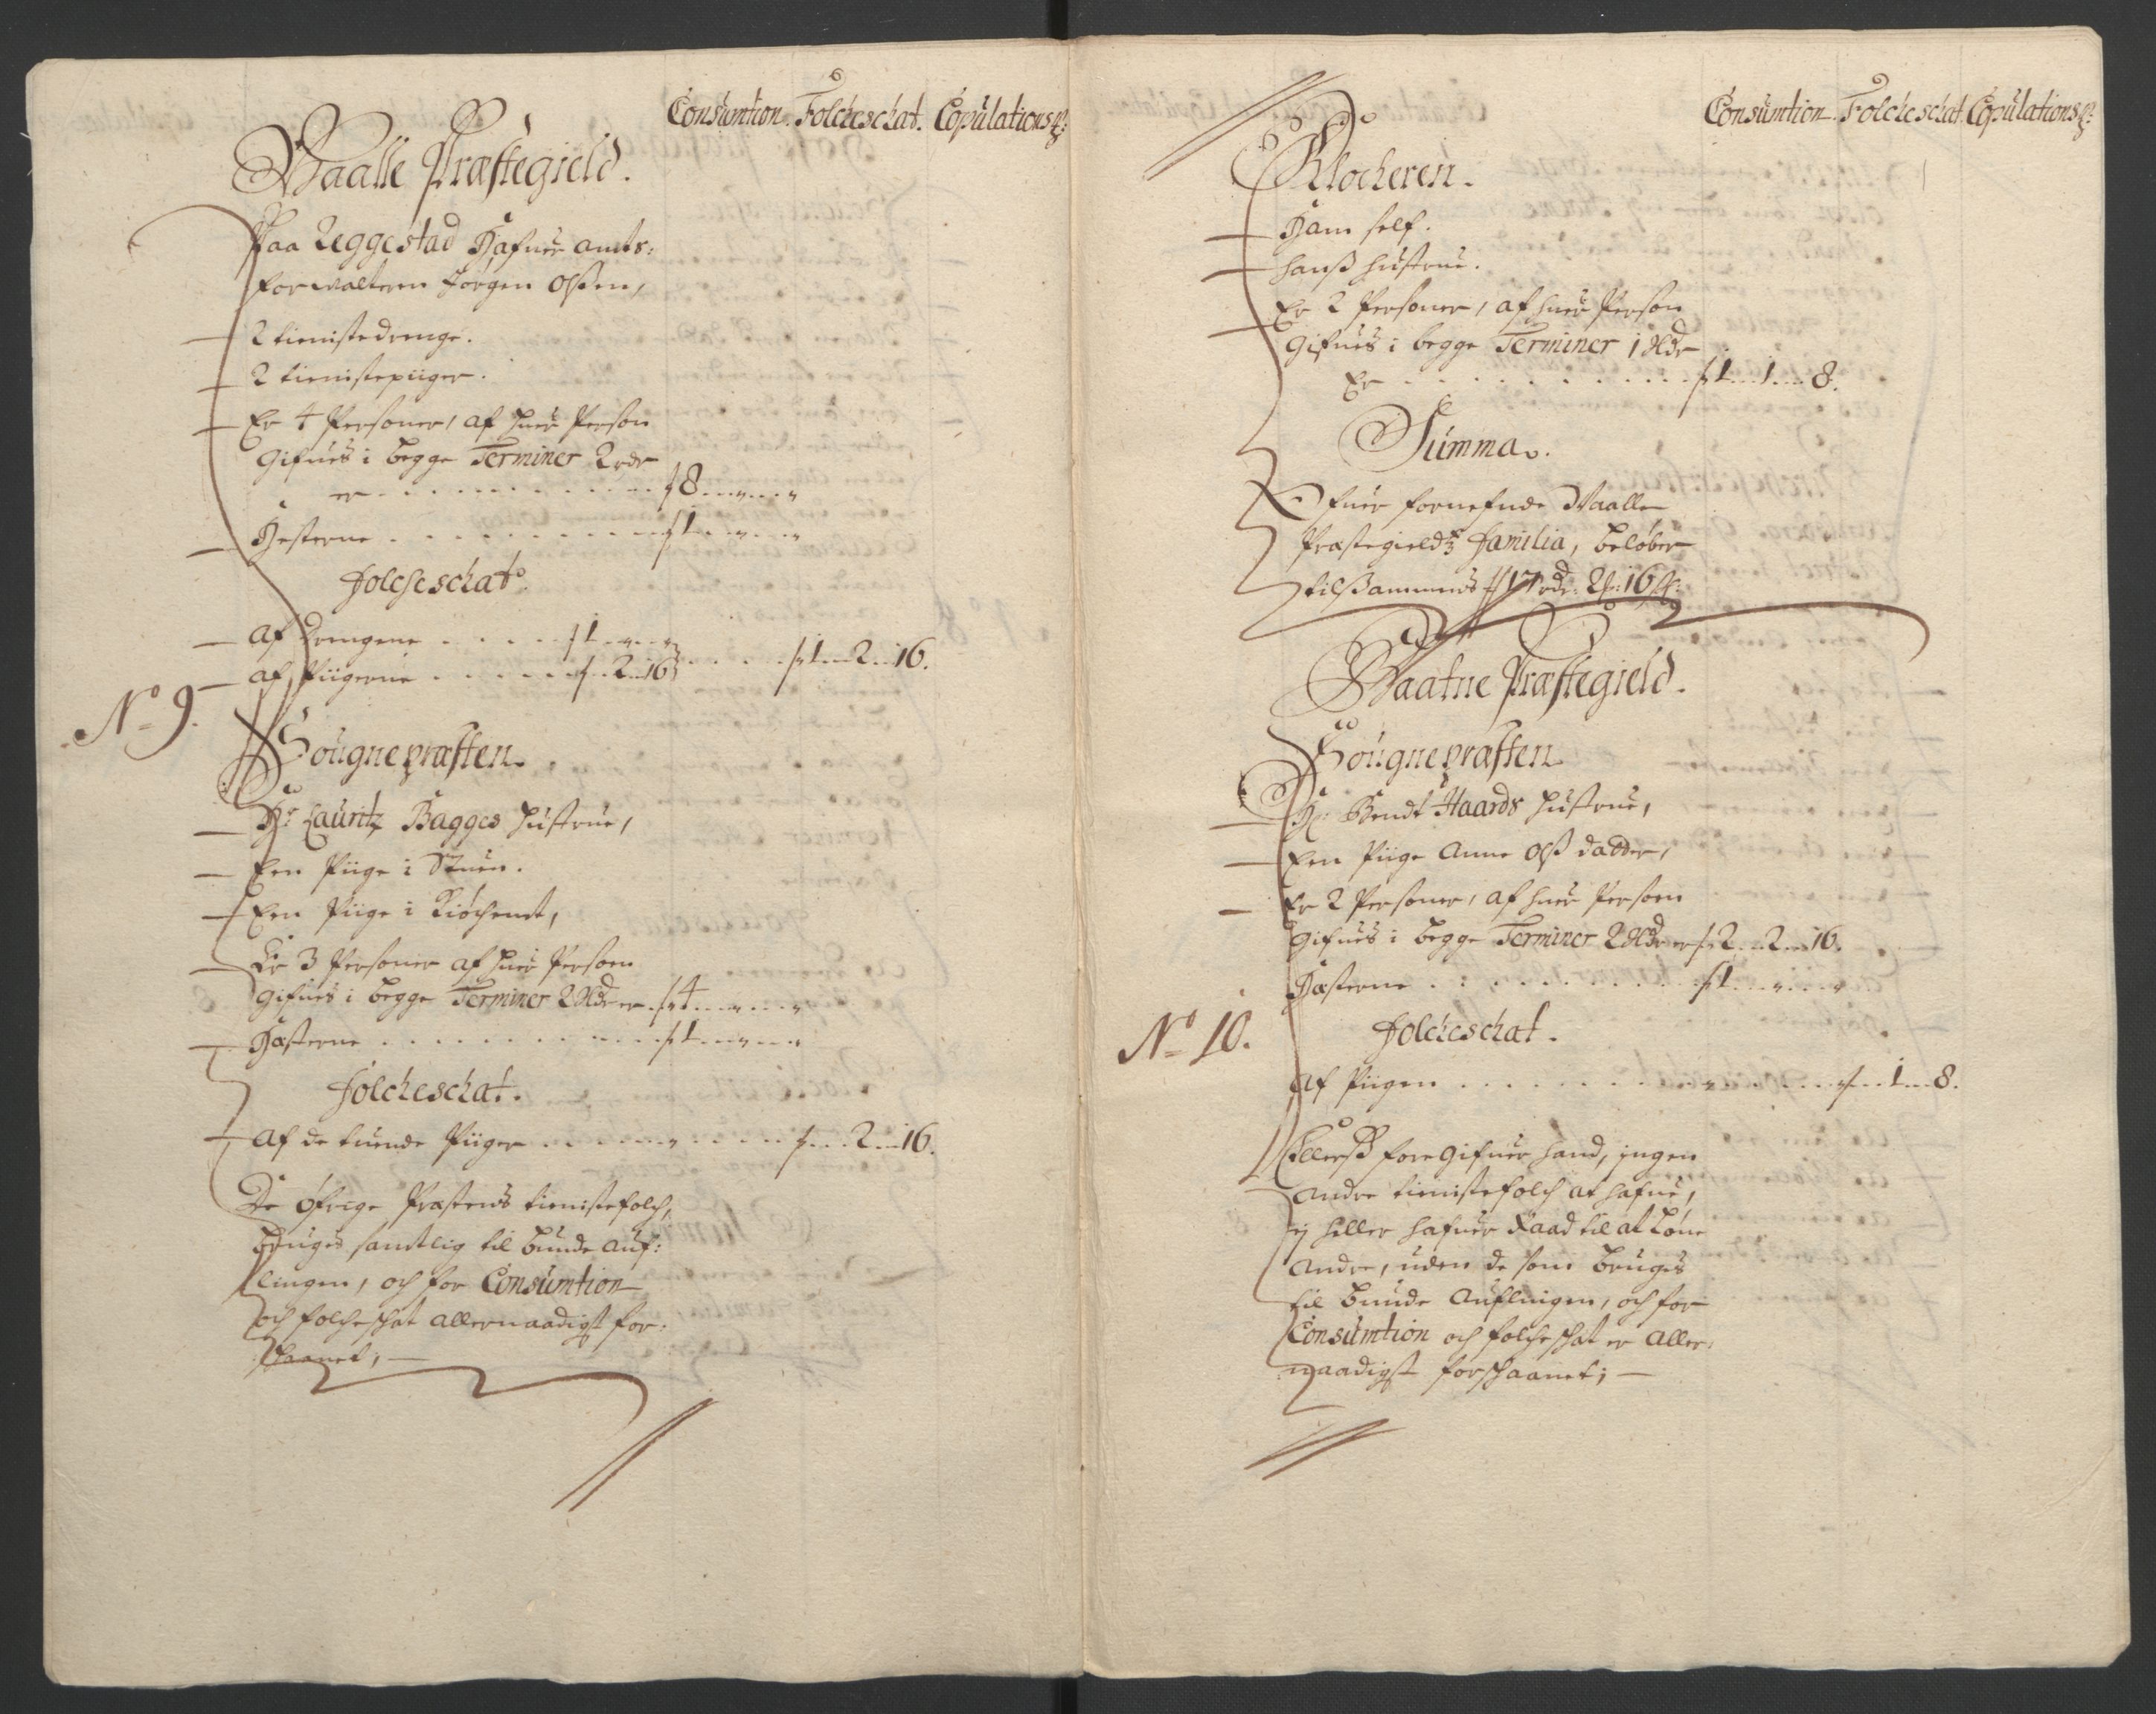 Consumtion. Folcheschat. Copulations p:
Waalle Præstegield.
Paa Reggestad Hafuer amts:
forwalteren Jørgen Olsen,
2 tienistedrenge.
2 tienistepiiger.
Er 4 Personer, af huer Person
Gifues i begge Terminer 2 rdr
er . . . . . 8 „ „
Hesterne . . . . . 1 „ „
Folcheschat.
af Drengene . . . . 1 „ „
af Piigerne . . . . 2 16 . . . 1 2 16.
No 9.
Sougnepræsten.
Hr Lauritz Bagges Hustrue,
Een Piige i Stuen.
Een Piige i Kiøchenet,
Er 3 Personer af huer Persoen
Gifues i begge Terminer 2 Rdr er 4 „ „
Hæsterne . . . . . 1 „ „
Folcheschat.
af de tuende Piiger . . . . . 2 16.
De øfrige Præstens tienistefolch,
bruges samtlig til bunde auf:
lingen, och for Consumtion
och folcheschat allernaadigst for:
schaanet, —
Consumtion. Folcheschat Copulations p:
Klocheren.
Ham self.
hanß hustrue.
Er 2 Personer, af huer Person
Gifues i begge Terminer 1 Rdr
Er . . . . . 1 1 8.
Summa.
Ofuer fornefnde Waalle
Præstegieldz Familia, beløber
tilsammens 17 rdr 2 16
Waatne Præstegield.
Sougnepræsten
Hr Bendt Haards hustrue,
Een Piige Anne Olß dadder,
Er 2 Personer, af huer Persoen
Gifues i begge Terminer 2 Rdr er 2 2 16.
Hæsterne . . . . . 1 „ „
No 10.
Folcheschat.
af Piigen . . . . . 1 8.
Ellerß foregifuer hand, ingen
andre tienistefolch at hafue,
ej heller hafuer Raad til at løne
andre, uden de som bruges
til bunde auflingen, och for
Consumtion och folcheschat er aller:
naadigst forschaanet; —